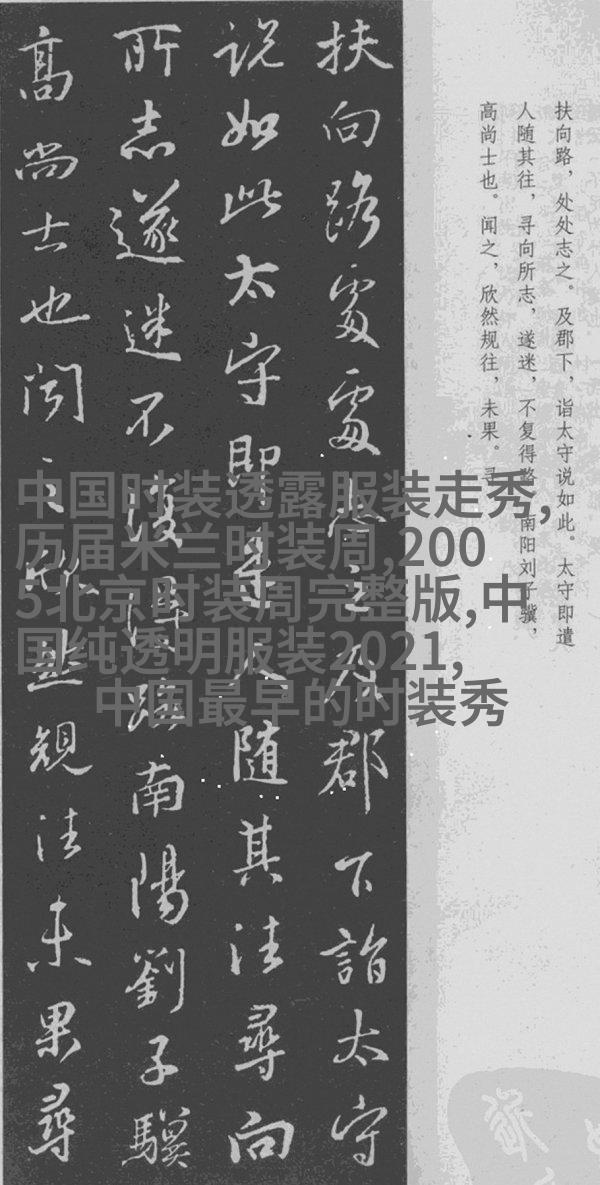 扶向路處處志之及郡下詣太守
説如此太守即遣人随其往尋向
所志遂迷不復得路南陽劉子驥
高尚士也聞之欣然規往未果尋
扶向路，处处志之。及郡下，诣太守说如此。太守即遣
人随其往，寻向所志，遂迷，不复得路。南阳刘子骥，
高尚士也。闻之，欣然规往，未果。寻
中国时装透露服装走秀,
历届米兰时装周,200
5北京时装周完整版,中
国纯透明服装2021,
中国最早的时装秀